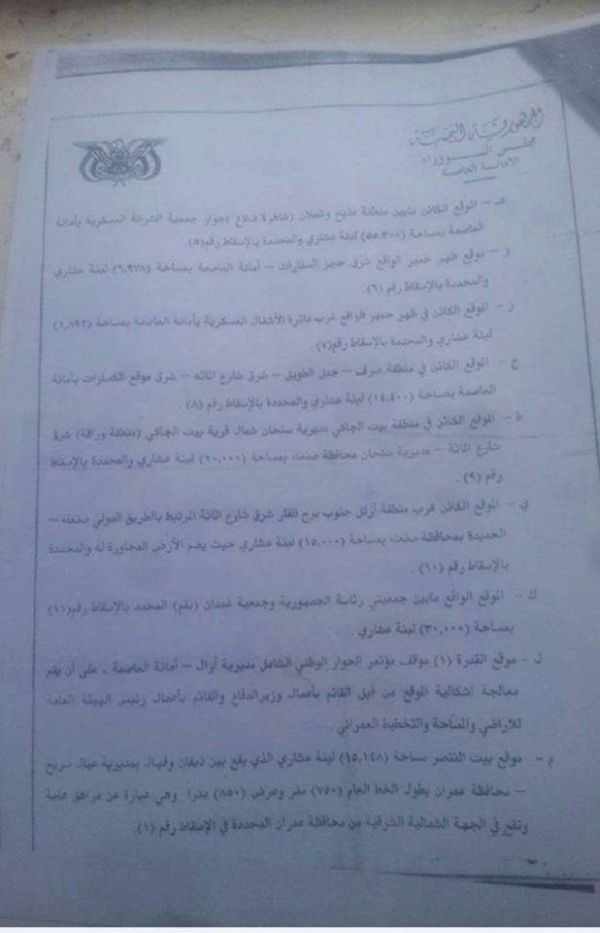 الجمهورية اليمنية
مجلس الوزراء
الأمانة العامة
هـ - الموقع الكائن مابين منطقة مذبح وشملان جوار جمعية الشرطة العسكرية بأمانة
العاصمة بمساحة (٥٥,٣٠٠) لبنة عشاري والمحددة بالإسقاط رقم (٥).
و - موقع ظهر حمير الواقع شرق حجز السفارات – أمانة العاصمة بمساحة لبنة عشاري
والمحددة بالإسقاط رقم (٦).
ز - الموقع الكائن في ظهر حمير الواقع غرب دائرة الأشغال العسكرية بأمانة العاصمة بمساحة (١,١٩٢)
لبنة عشاري والمحددة بالإسقاط رقم (٧)
ح - الموقع الكائن في منطقة صرف – جبل الطويل – شرق شارع المائة – شرق موقع الكسارات بأمانة
العاصمة بمساحة (١٤,٤٠٠) لبنة عشاري والمحددة بالإسقاط رقم (٨).
ط - الموقع الكائن في منطقة بيت الجاكي مديرية سنحان شمال قرية بيت الجاكي (منطقة شرق
شارع المائة – مديرية سنحان محافظة صنعاء بمساحة لبنة عشاري والمحددة بالإسقاط
رقم (٩).
ي - الموقع الكائن قرب منطقة أرتل جنوب شرق شارع المائة المرتبط بالطريق الدولي صنعاء –
الحديدة بمحافظة صنعاء بمساحة (١٥,٠٠٠) لبنة عشاري حيث يضم الأرض المجاورة له والمحددة
بالإسقاط رقم (١٠).
ك - الموقع الواقع مابين جمعيتي رئاسة الجمهورية وجمعية غمدان (نقم) المحدد بالإسقاط رقم
بمساحة (٣٠,٠٠٠) لبنة عشاري.
ل - موقع القدرة (١) موقف مؤتمر الحوار الوطني الشامل مديرية أزال – أمانة العاصمة، على أن يتم
معالجة اشكالية الموقع من قبل القائم بأعمال وزير الدفاع والقائم بأعمال رئيس الهيئة العامة
للاراضي والمساحة والتخطيط العمراني
م - موقع بيت المنتصر مساحة (٦٥,١٤٨) لبنة عشاري الذي يقع بين ذيفان بمديرية عيال سريح
– محافظة عمران بطول الخط العام (٧٥٠) متر وعرض (٨٥٠) مترا وهي عبارة عن مرافق عامة
وتقع في الجهة الشمالية الشرقية من محافظة عمران المحددة في الإسقاط رقم (١).